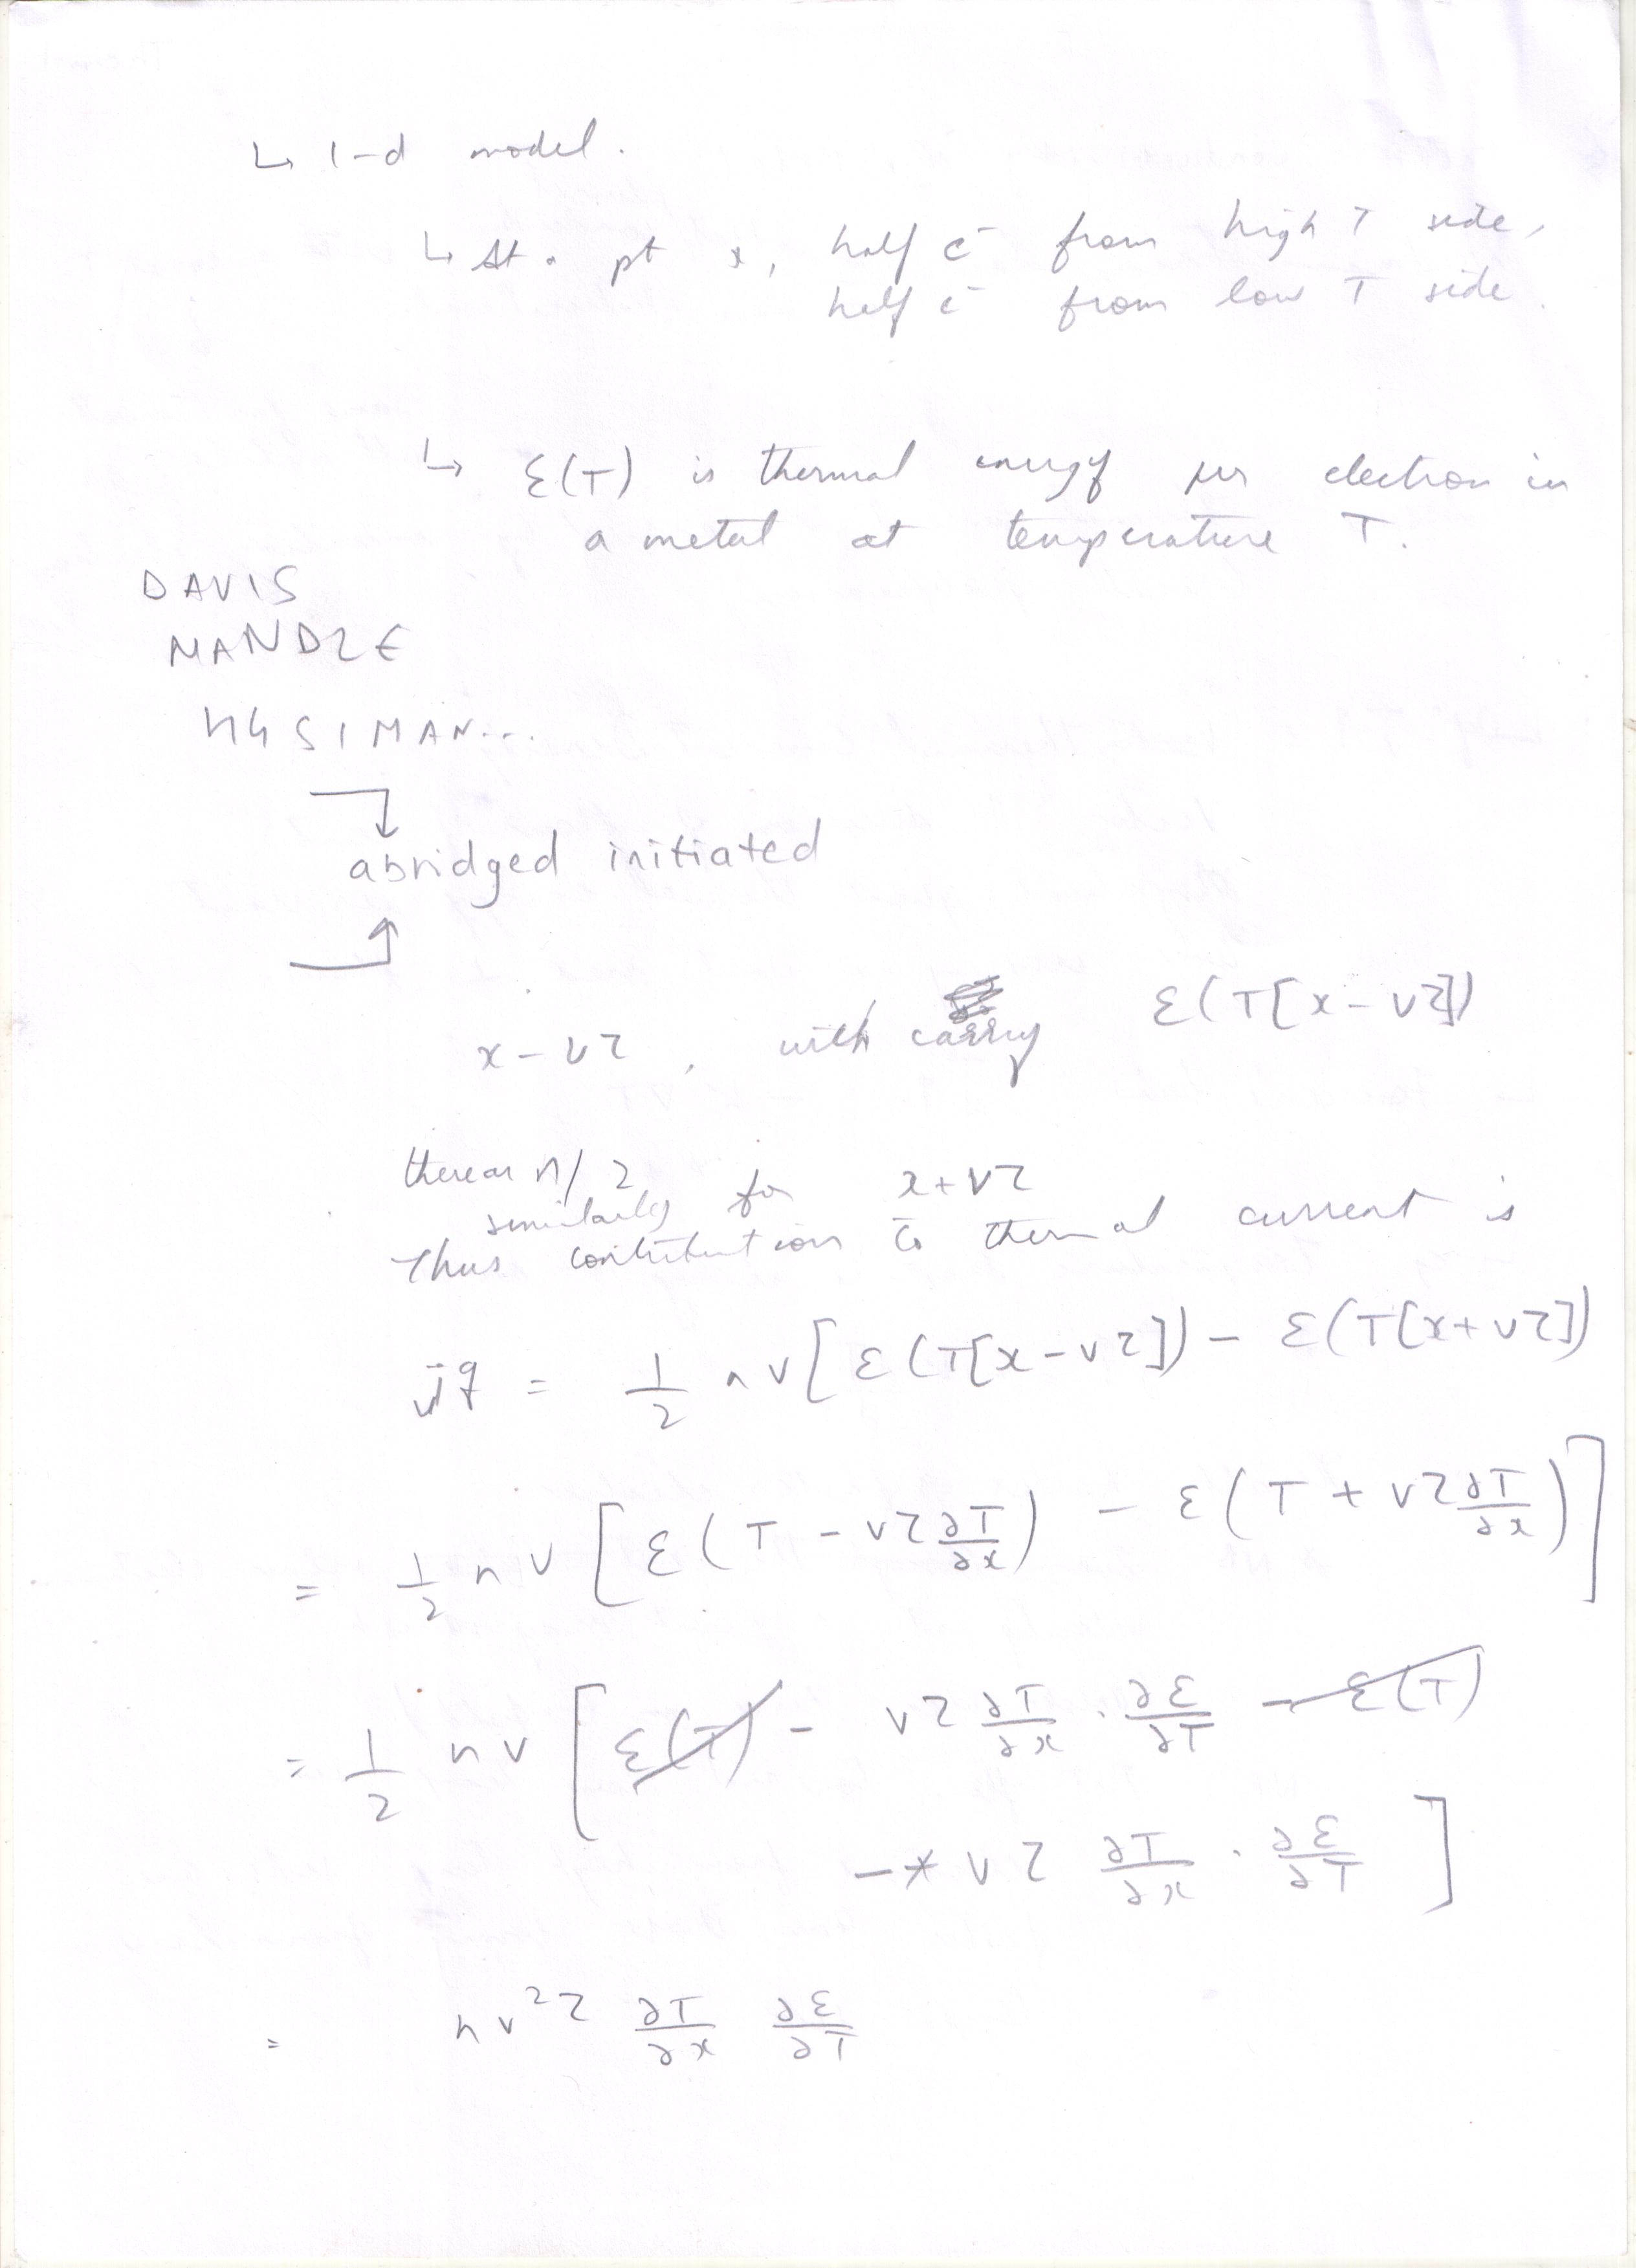 ↳ 1-d model.
↳ At a pt x, half e⁻ from high T side,
half e⁻ from low T side.
↳ Ɛ(T) is thermal energy per electron in
a metal at temperature T.
DAVIS
MANDZE
SIMAN...
abridged initiated
x - vτ, with carry Ɛ(T[x - vτ])
there are n/2
similarly for x + vτ
Thus contribution to thermal current is
j^q = 1/2 nv[Ɛ(T[x - vτ]) - Ɛ(T[x + vτ])
= 1/2 nv [Ɛ(T - vτ ∂T/∂x) - Ɛ(T + vτ ∂T/∂x)]
= 1/2 nv [Ɛ(T) - vτ ∂T/∂x · ∂Ɛ/∂T - Ɛ(T)
- vτ ∂T/∂x · ∂Ɛ/∂T]
= nv²τ ∂T/∂x ∂Ɛ/∂T